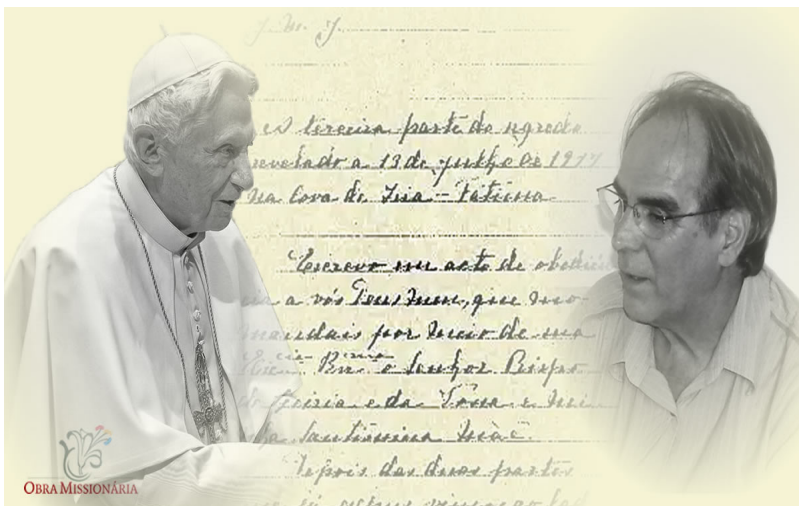 J. M. J.
A terceira parte do segredo
revelado a 13 de julho de 1917
na Cova de Iria – Fátima
Escrevo em acto de obediên
a vós Deus meu, que mo
mandais por meio de sua
Ex.cia Rev.ma o Senhor Bispo
de Leiria e da Vossa e mi
nha Santíssima Mãe.
Depois das duas partes
que já
OBRA MISSIONÁRIA